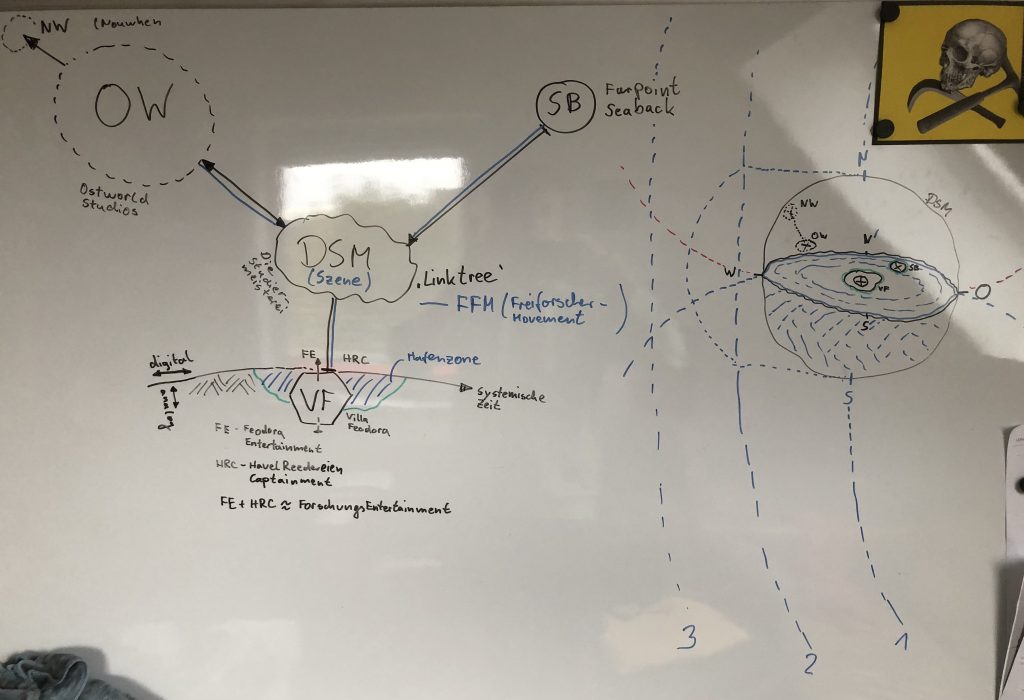 NW (Nouwhen
OW
Ostworld
Studios
SB
Farpoint
Seaback
DSM
(Szene)
Die
Studier-
meisterei
Linktree
FFM (Freiforscher-
Movement
)
FE
HRC
Hafenzone
digital
analog
VF
Villa
Feodora
Systemische
Zeit
FE - Feodora
Entertainment
HRC - Havel Reedereien
Captainment
FE + HRC ≈ ForschungsEntertainment
N
DSM
NW
OW
N'
SB
W
VF
O
S'
S
3
2
1